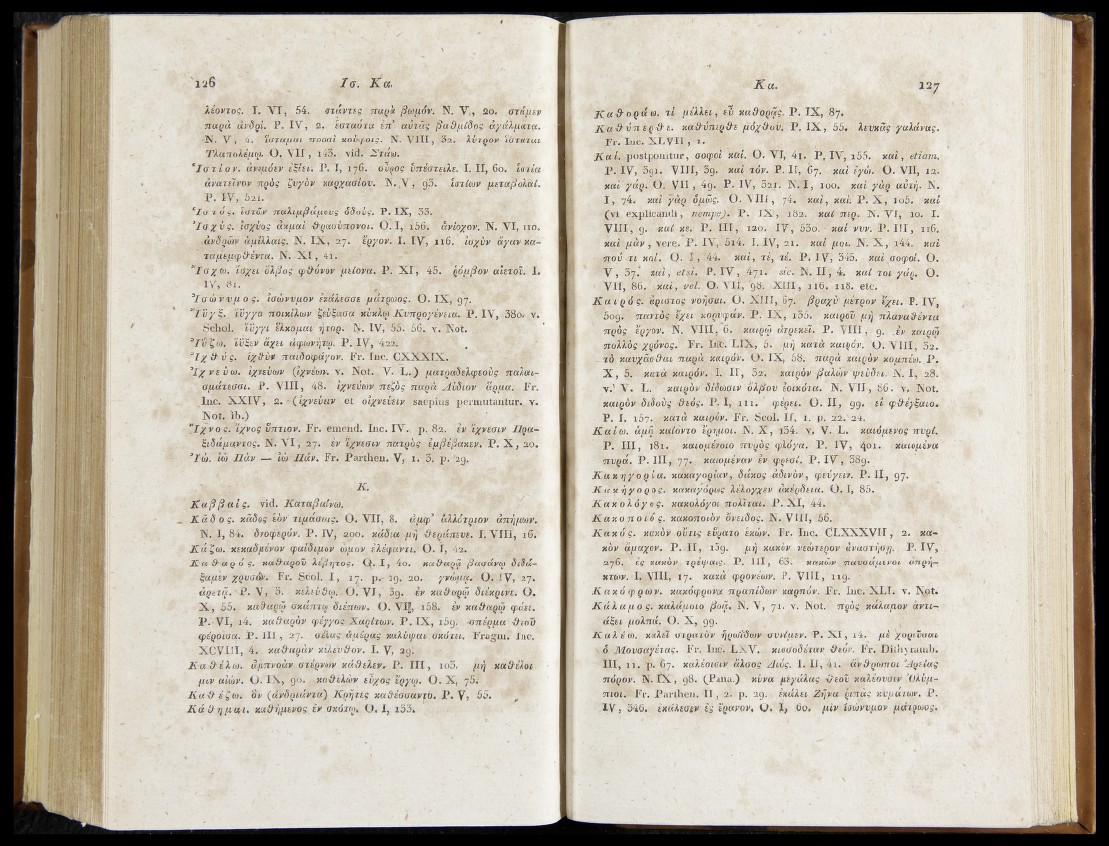 126 Ισ. Κα.
λέοντος. I. VI, 54. στάντες παρὰ βωμόν. N. V, 20. στάμεν
παρὰ ἀνδρί. P. IV, 2. ἑσταότα ἐπ' αὐτᾶς βαθμῖδος ἀγάλματα.
N. V, 2. ἵσταμαι ποσσὶ κούφοις. N. VIII, 32. λύτρον ἵσταται
Τλαπολέμῳ. O. VII, 143. vid. Στάω.
Ἱστίον. ἀνεμόεν ἐξίει. P. I, 176. οὖρος ὑπέστειλε. I. II, 60. ἱστία
ἀνατεῖνον πρὸς ζυγὸν καρχασίου. N. V, 93. ἱστίων μεταβολαί.
P. IV, 521.
Ἱστός. ἱστῶν παλιμβάμους ὁδούς. P. IX, 33.
Ἰσχύς. ἰσχύος ἀκμαὶ θρασύπονοι. O. I, 156. ἀνίοχον. N. VI, 110.
ἀνδρῶν ἁμίλλαις. N. IX, 27. ἔργον. I. IV, 116. ἰσχὺν ἄγαν κα-
ταμεμφθέντα. N. XI, 41.
Ἴσχω. ἴσχει ὄλβος φθόνον μείονα. P. XI, 45. ῥόμβον αἰετοῦ. I.
IV, 81.
Ἰσώνυμος. ἰσώνυμον ἐκάλεσσε μάτρωος. O. IX, 97.
Ἴυγξ. ἴυγγα ποικίλων ζεύξασα κύκλῳ Κυπρογένεια. P. IV, 380. v.
Schol. ἴυγγι ἕλκομαι ἦτορ. N. IV, 55. 56. v. Not.
Ἰΰζω. ἴϋξεν ἄχει ἀφωνήτῳ. P. IV, 422.
Ἰχθύς. ἰχθὺν παιδοφάγον. Fr. Inc. CXXXIX.
Ἰχνεύω. ἰχνεύων (ἰχνέων. v. Not. V. L.) ματραδελφεοὺς παλαι-
σμάτεσσι. P. VIII, 48. ἰχνεύων πεζὸς παρὰ Λύδιον ἅρμα. Fr.
Inc. XXIV, 2. (ἰχνεύειν et οἰχνεύειν saepius permutantur. v.
Not. ib.)
Ἴχνος. ἴχνος ὕπτιον. Fr. emend. Inc. IV. p. 82. ἐν ἴχνεσιν Πρα-
ξιδάμαντος. N. VI, 27. ἐν ἴχνεσιν πατρὸς ἐμβέβακεν. P. X, 20.
Ἰώ. ἰὼ Πάν — ἰὼ Πάν. Fr. Parthen. V, 1. 3. p. 29.
K.
Καββαίς. vid. Καταβαίνω.
Κάδος. κᾶδος ἑὸν τιμάσαις. O. VII, 8. ἀμφ' ἀλλότριον ἀπήμων.
N. I, 84. δνοφερόν. P. IV, 200. κάδια μὴ θεράπευε. I. VIII, 16.
Κάζω. κεκαδμένον φαίδιμον ὦμον ἐλέφαντι. O. I, 42.
Καθαρός. καθαροῦ λέβητος. O. I, 40. καθαρᾷ βασάνῳ διδά-
ξαμεν χρυσῶν. Fr. Scol. I, 17. p. 19. 20. γνώμᾳ. O. IV, 27.
ἀρετᾷ. P. V, 5. κελεύθῳ. O. VI, 39. ἐν καθαρῷ διέκρινε. O.
X, 55. καθαρῷ σκάπτῳ διέπων. O. VII, 158. ἐν καθαρῷ φάει.
P. VI, 14. καθαρὸν φέγγος Χαρίτων. P. IX, 159. σπέρμα θεοῦ
φέροισα. P. III, 27. σέλας ἁμέρας καλύψαι σκότει. Fragm. Inc.
XCVIII, 4. καθαρὰν κέλευθον. I. V, 29.
Καθέλω. ἄμπνοὰν στέρνων κάθελεν. P. III, 103. μὴ καθέλοι
μιν αἰών. O. IX, 90. καθελὼν εὖχος ἔργῳ. O. X, 75.
Καθέζω. ὃν (ἀνδριάντα) Κρῆτες καθέσσαντο. P. V, 55.
Κάθημαι. καθήμενος ἐν σκότῳ. O. I, 133.
Κα. 127
Καθοράω. τί μέλλει, εὖ καθορᾷς. P. IX, 87.
Καθύπερθε. καθύπερθε μόχθου. P. IX, 55. λευκᾶς γαλάνας.
Fr. Inc. XLVII, 1.
Καί. postponitur, σοφοὶ καί. O. VI, 41. P. IV, 155. καί, etiam,
P. IV, 391. VIII, 39. καὶ τόν. P. II, 67. καὶ ἐγώ. O. VII, 12.
καὶ γάρ. O. VII, 49. P. IV, 321. N. I, 100. καὶ γὰρ αὐτή. N.
I, 74. καὶ γὰρ ὅμως. O. VIII, 74. καί, καί. P. X, 105. καί
(vi explicandi, nempe). P. IX, 182. καί περ. N. VI, 10. I.
VIII, 9. καί κε. P. III, 120. IV, 530. καί νυν. P. III, 116.
καὶ μάν, vere. P. IV, 514. I. IV, 21. καί μοι. N. X, 144. καί
πού τι καί. O. I, 44. καί, τέ, τέ. P. IV, 345. καὶ σοφοί. O.
V, 37. καί, etsi. P. IV, 471. sic. N. II, 4. καί τοι γάρ. O.
VII, 86. καί, vel. O. VII, 98. XIII, 116. 118. etc.
Καιρός. ἄριστος νοῆσαι. O. XIII, 67. βραχὺ μέτρον ἔχει. P. IV,
509. παντὸς ἔχει κορυφάν. P. IX, 135. καιροῦ μὴ πλαναθέντα
πρὸς ἔργον. N. VIII, 6. καιρῷ ἀτρεκεῖ. P. VIII, 9. ἐν καιρῷ
πολλὸς χρόνος. Fr. Inc. LIX, 5. μὴ κατὰ καιρόν. O. VIII, 32.
τὸ καυχᾶσθαι παρὰ καιρόν. O. IX, 58. παρὰ καιρὸν κομπέω. P.
X, 5. κατὰ καιρόν. I. II, 32. καιρὸν βαλὼν ψεύδει. N. I, 28.
v. V. L. καιρὸν δίδωσιν ὄλβου ἐοικότα. N. VII, 86. v. Not.
καιρὸν διδοὺς θεός. P. I, 111. φέρει. O. II, 99. εἰ φθέγξαιο.
P. I, 157. κατὰ καιρόν. Fr. Scol. II, 1. p. 22. 24.
Καίω. ἁμᾷ καίοντο ἐρῆμοι. N. X, 134. v. V. L. καιόμενος πυρί.
P. III, 181. καιομένοιο πυρὸς φλόγα. P. IV, 401. καιομένα
πυρά. P. III, 77. καιομέναν ἐν φρεσί. P. IV, 389.
Κακηγορία. κακαγορίαν, δάκος ἀδινὸν, φεύγειν. P. II, 97.
Κακήγορος. κακαγόρως λέλογχεν ἀκέρδεια. O. I, 85.
Κακολόγος. κακολόγοι πολῖται. P. XI, 44.
Κακοποιός. κακοποιὸν ὄνειδος. N. VIII, 56.
Κακός. κακὸν οὔτις εὕρατο ἑκών. Fr. Inc. CLXXXVII, 2. κα-
κὸν ἄμαχον. P. II, 139. μὴ κακὸν νεώτερον ἀναστήσῃ. P. IV,
276. ἐς κακὸν τρέψαις. P. III, 63. κακῶν παυσάμενοι ἀπρή-
κτων. I. VIII, 17. κακὰ φρονέων. P. VIII, 119.
Κακόφρων. κακόφρονα πραπίδων καρπόν. Fr. Inc. XLI. v. Not.
Κάλαμος. καλάμοιο βοᾷ. N. V, 71. v. Not. πρὸς κάλαμον ἀντι-
άξει μολπά. O. X, 99.
Καλέω. καλεῖ στρατὸν ἡρωΐδων συνίμεν. P. XI, 14. μὲ χορεῦσαι
ὁ Μουσαγέτας. Fr. Inc. LXV. κισσοδέταν θεόν. Fr. Dithyramb.
III, 11. p. 67. καλέοισιν ἄλσος Διός. I. II, 41. ἄνθρωποι Ἀρείας
πόρον. N. IX, 98. (Pana.) κύνα μεγάλας θεοῦ καλέουσιν Ὀλύμ-
πιοι. Fr. Parthen. II, 2. p. 29. ἐκάλει Ζῆνα ῥιπὰς κυμάτων. P.
IV, 346. ἐκάλεσεν ἐς ἔρανον. O. I, 60. μὲν ἰσώνυμον μάτρωος.